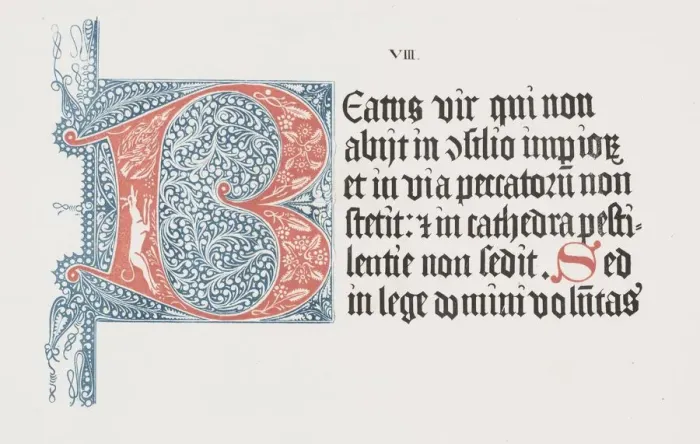 VIII.
BEatus vir qui non
abijt in ↄſilio impioꝝ
et in via peccatorū non
ſtetit: ⁊ in cathedra peſti⸗
lentie non ſedit. Sed
in lege domini volūtas